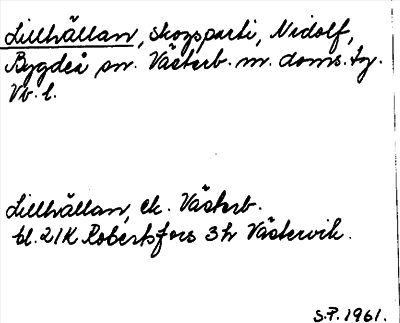 Lillhällan, skogsparti, Nidolf,
Bygdeå sn. Västerb. m. doms. tg.
Vb. l.
Lillhällan, ek. Västerb.
bl. 21K Robertsfors 3h Västervik.
S.P. 1961.